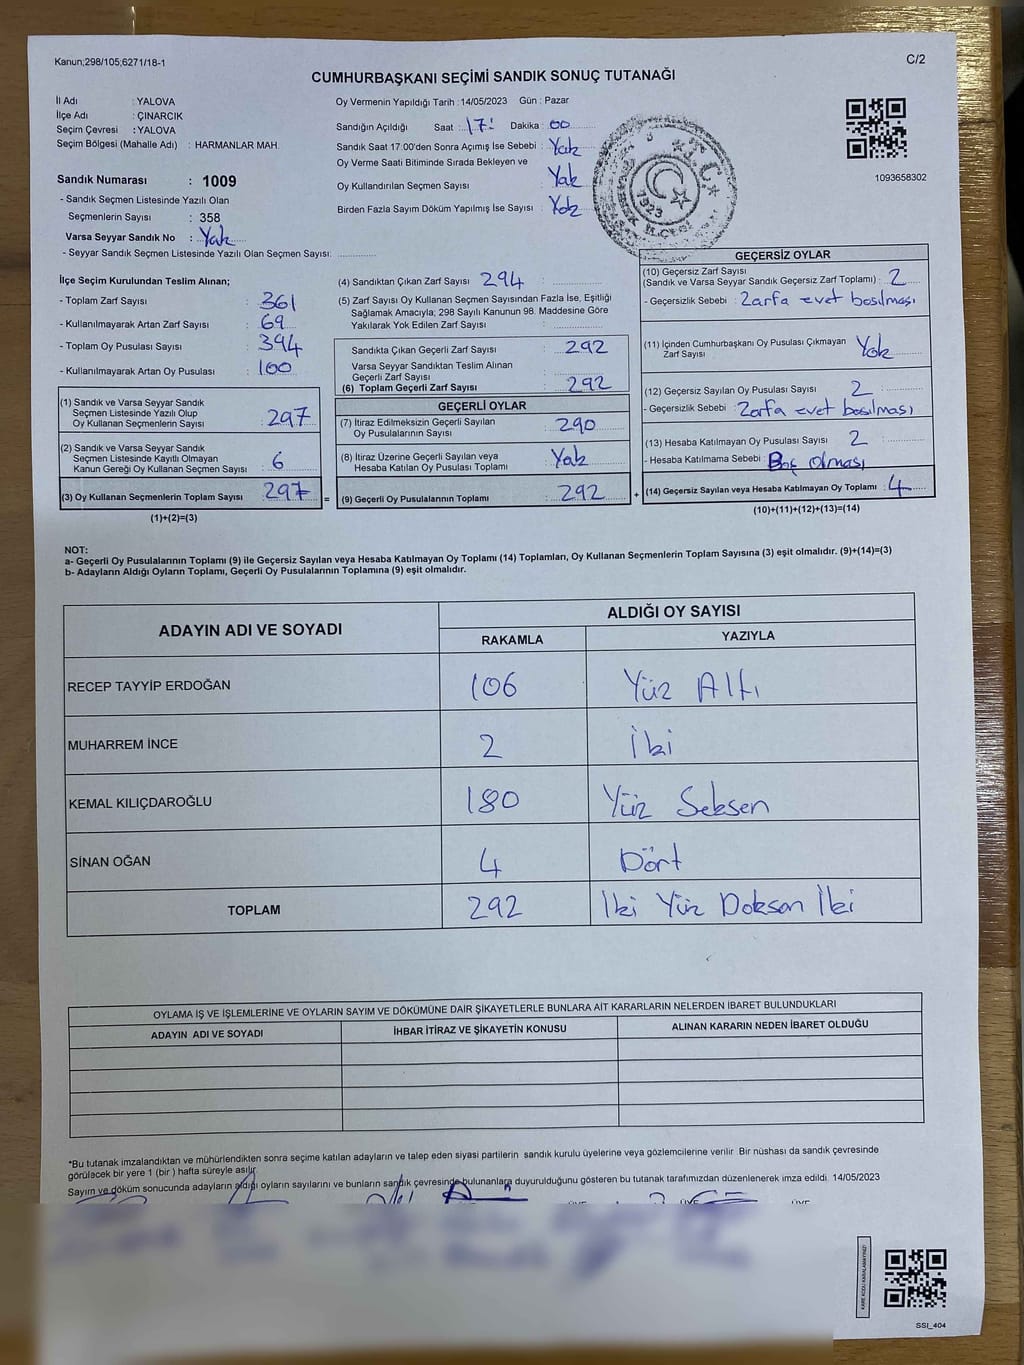 Kanun;298/105;6271/18-1
C/2
CUMHURBAŞKANI SEÇİMİ SANDIK SONUÇ TUTANAĞI
İl Adı : YALOVA
İlçe Adı : ÇINARCIK
Seçim Çevresi : YALOVA
Seçim Bölgesi (Mahalle Adı) : HARMANLAR MAH.
Sandık Numarası : 1009
- Sandık Seçmen Listesinde Yazılı Olan
Seçmenlerin Sayısı : 358
Varsa Seyyar Sandık No : Yok
- Seyyar Sandık Seçmen Listesinde Yazılı Olan Seçmen Sayısı:
Oy Vermenin Yapıldığı Tarih : 14/05/2023 Gün : Pazar
Sandığın Açıldığı Saat : 17: Dakika : 00
Sandık Saat 17:00'den Sonra Açımış İse Sebebi : Yok
Oy Verme Saati Bitiminde Sırada Bekleyen ve
Oy Kullandırılan Seçmen Sayısı : Yok
Birden Fazla Sayım Döküm Yapılmış İse Sayısı : Yok
1093658302
T.C.
1923
İlçe Seçim Kurulundan Teslim Alınan;
- Toplam Zarf Sayısı : 361
- Kullanılmayarak Artan Zarf Sayısı : 69
- Toplam Oy Pusulası Sayısı : 394
- Kullanılmayarak Artan Oy Pusulası : 100
(1) Sandık ve Varsa Seyyar Sandık
Seçmen Listesinde Yazılı Olup
Oy Kullanan Seçmenlerin Sayısı : 297
(2) Sandık ve Varsa Seyyar Sandık
Seçmen Listesinde Kayıtlı Olmayan
Kanun Gereği Oy Kullanan Seçmen Sayısı : 6
(3) Oy Kullanan Seçmenlerin Toplam Sayısı : 297 =
(1)+(2)=(3)
(4) Sandıktan Çıkan Zarf Sayısı 294 :
(5) Zarf Sayısı Oy Kullanan Seçmen Sayısından Fazla İse, Eşitliği
Sağlamak Amacıyla; 298 Sayılı Kanunun 98. Maddesine Göre
Yakılarak Yok Edilen Zarf Sayısı :
Sandıkta Çıkan Geçerli Zarf Sayısı : 292
Varsa Seyyar Sandıktan Teslim Alınan
Geçerli Zarf Sayısı :
(6) Toplam Geçerli Zarf Sayısı : 292
GEÇERLİ OYLAR
(7) İtiraz Edilmeksizin Geçerli Sayılan
Oy Pusulalarının Sayısı : 290
(8) İtiraz Üzerine Geçerli Sayılan veya
Hesaba Katılan Oy Pusulası Toplamı : Yok
(9) Geçerli Oy Pusulalarının Toplamı : 292 +
GEÇERSİZ OYLAR
(10) Geçersiz Zarf Sayısı
(Sandık ve Varsa Seyyar Sandık Geçersiz Zarf Toplamı) : 2
- Geçersizlik Sebebi : Zarfa evet basılması
(11) İçinden Cumhurbaşkanı Oy Pusulası Çıkmayan
Zarf Sayısı : Yok
(12) Geçersiz Sayılan Oy Pusulası Sayısı 2 :
- Geçersizlik Sebebi : Zarfa evet basılması
(13) Hesaba Katılmayan Oy Pusulası Sayısı 2 :
- Hesaba Katılmama Sebebi : Boş Olması
(14) Geçersiz Sayılan veya Hesaba Katılmayan Oy Toplamı : 4
(10)+(11)+(12)+(13)=(14)
NOT:
a- Geçerli Oy Pusulalarının Toplamı (9) ile Geçersiz Sayılan veya Hesaba Katılmayan Oy Toplamı (14) Toplamları, Oy Kullanan Seçmenlerin Toplam Sayısına (3) eşit olmalıdır. (9)+(14)=(3)
b- Adayların Aldığı Oyların Toplamı, Geçerli Oy Pusulalarının Toplamına (9) eşit olmalıdır.
ADAYIN ADI VE SOYADI
ALDIĞI OY SAYISI
RAKAMLA YAZIYLA
RECEP TAYYİP ERDOĞAN 106 Yüz Altı
MUHARREM İNCE 2 İki
KEMAL KILIÇDAROĞLU 180 Yüz Seksen
SİNAN OĞAN 4 Dört
TOPLAM 292 İki Yüz Doksan İki
OYLAMA İŞ VE İŞLEMLERİNE VE OYLARIN SAYIM VE DÖKÜMÜNE DAİR ŞİKAYETLERLE BUNLARA AİT KARARLARIN NELERDEN İBARET BULUNDUKLARI
ADAYIN ADI VE SOYADI İHBAR İTİRAZ VE ŞİKAYETİN KONUSU ALINAN KARARIN NEDEN İBARET OLDUĞU
*Bu tutanak imzalandıktan ve mühürlendikten sonra seçime katılan adayların ve talep eden siyasi partilerin sandık kurulu üyelerine veya gözlemcilerine verilir. Bir nüshası da sandık çevresinde
görülecek bir yere 1 (bir ) hafta süreyle asılır.
Sayım ve döküm sonucunda adayların aldığı oyların sayılarını ve bunların sandık çevresinde bulunanlara duyurulduğunu gösteren bu tutanak tarafımızdan düzenlenerek imza edildi. 14/05/2023
KARE KODU KARALAMAYINIZ!
SSI_404